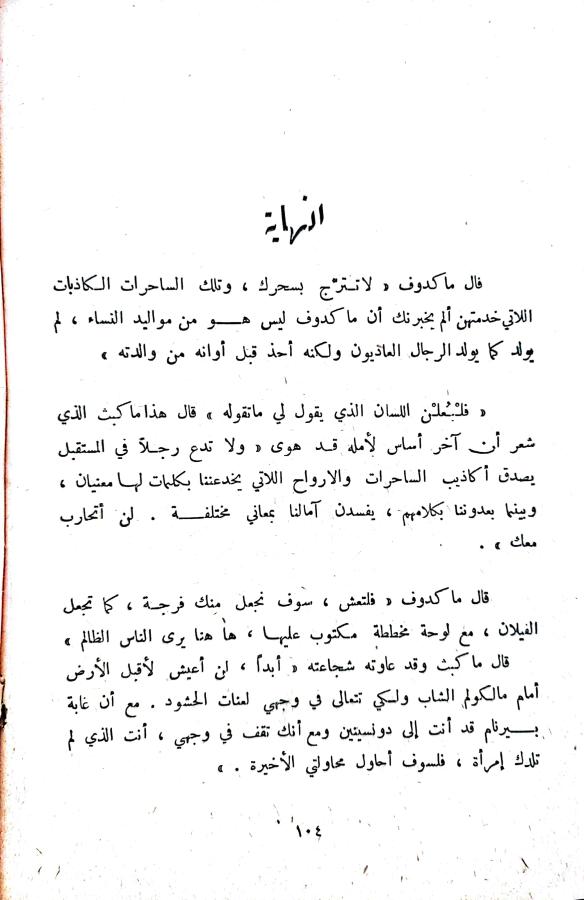 النهاية
قال ماكدوف « لا تترج بسحرك ، وتلك الساحرات الكاذبات
اللاتي خدمتهن ألم يخبرنك أن ماكدوف ليس هو من مواليد النساء ، لم
يولد كما يولد الرجال العاديون ولكنه أخذ قبل أوانه من والدته »
« فلتلعن اللسان الذي يقول لي ماتقوله » قال هذا ماكبث الذي
شعر أن آخر أساس لأمله قد هوى « ولا تدع رجلاً في المستقبل
يصدق أكاذيب الساحرات والارواح اللاتي يخدعننا بكلمات لها معنيان ،
وبينما يعدوننا بكلامهم ، يفسدن آمالنا بمعاني مختلفة . لن أتحارب
معك » .
قال ماكدوف « فلتعش ، سوف نجعل منك فرجة ، كما تجعل
الفيلان ، مع لوحة مخططة مكتوب عليها ، ها هنا يرى الناس الظالم »
قال ماكبث وقد عاوته شجاعته « أبداً ، لن أعيش لأقبل الأرض
أمام مالكولم الشاب ولكي تتعالى في وجهي لعنات الحشود . مع أن غابة
بيرنام قد أنت إلى دونسيتين ومع أنك تقف في وجهي ، أنت الذي لم
تلدك إمرأة ، فلسوف أحاول محاولتي الأخيرة . »
١٠٤